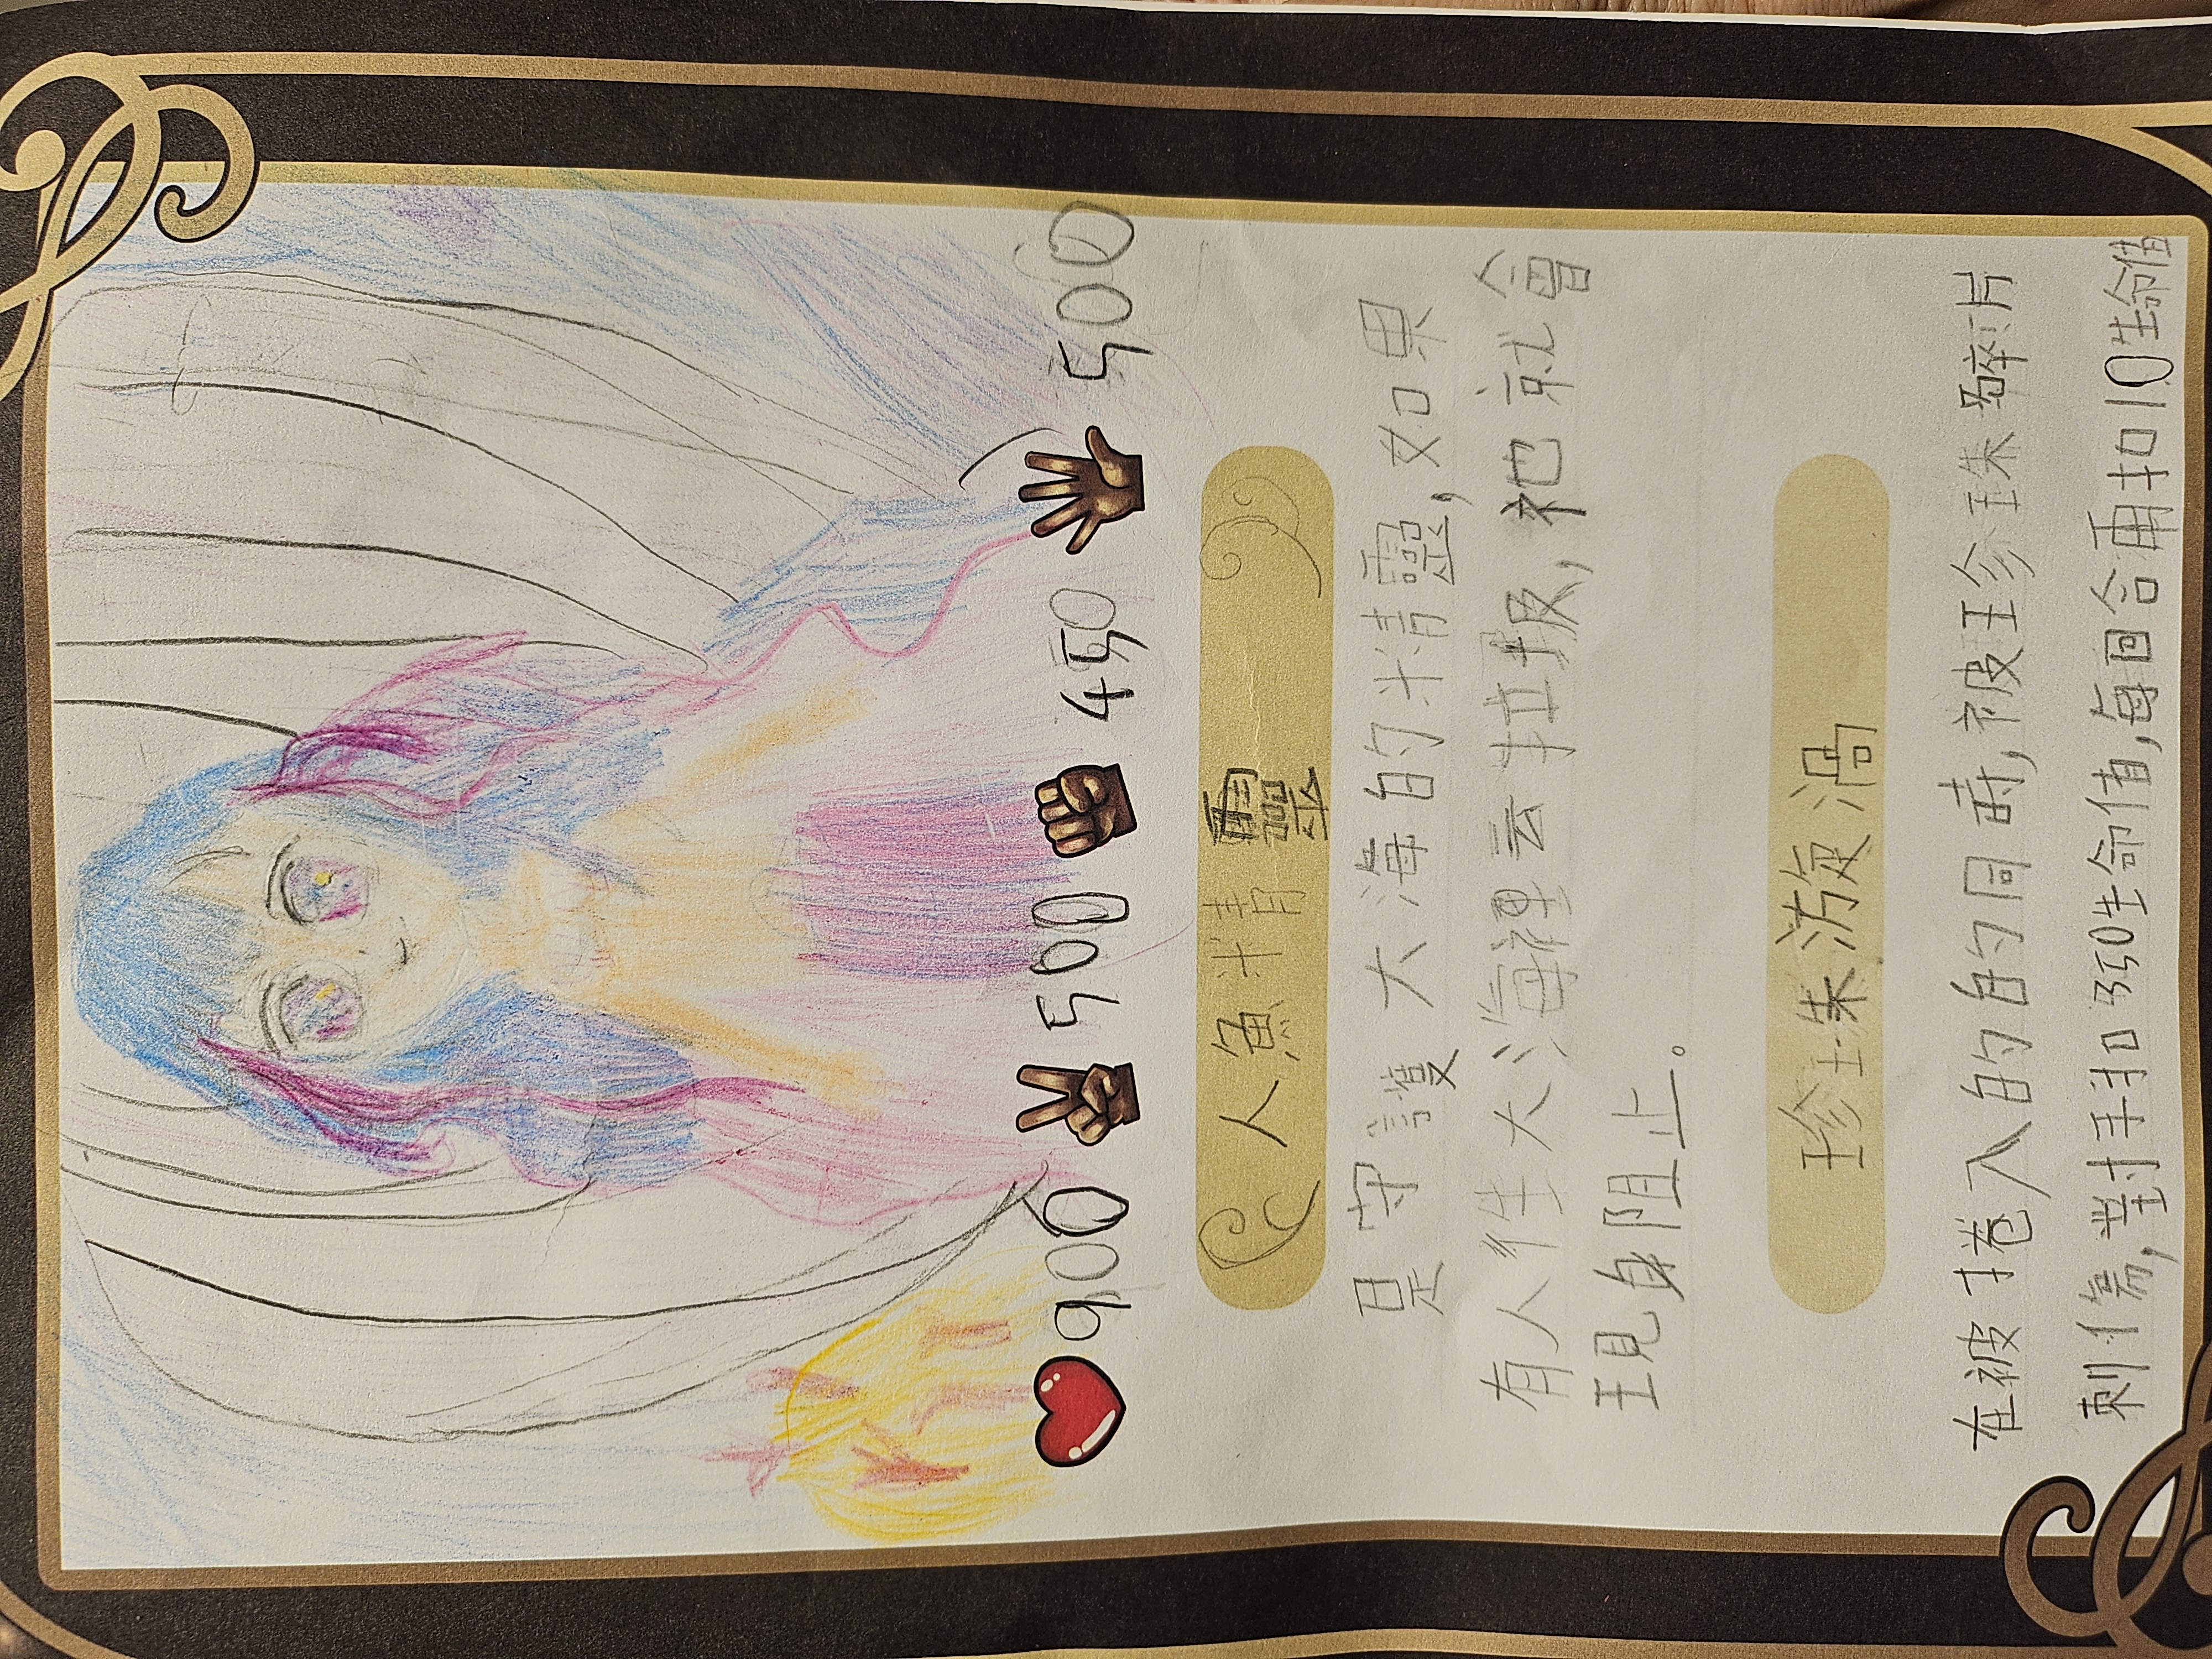 900 500 450 500
人魚精靈
是守護大海的精靈,如果
有人往大海裡丟垃圾,祂就會
現身阻止。
珍珠漩渦
在被捲入的的同時,被珍珠碎片
刺傷,對手扣350生命值,每回合再扣10生命值